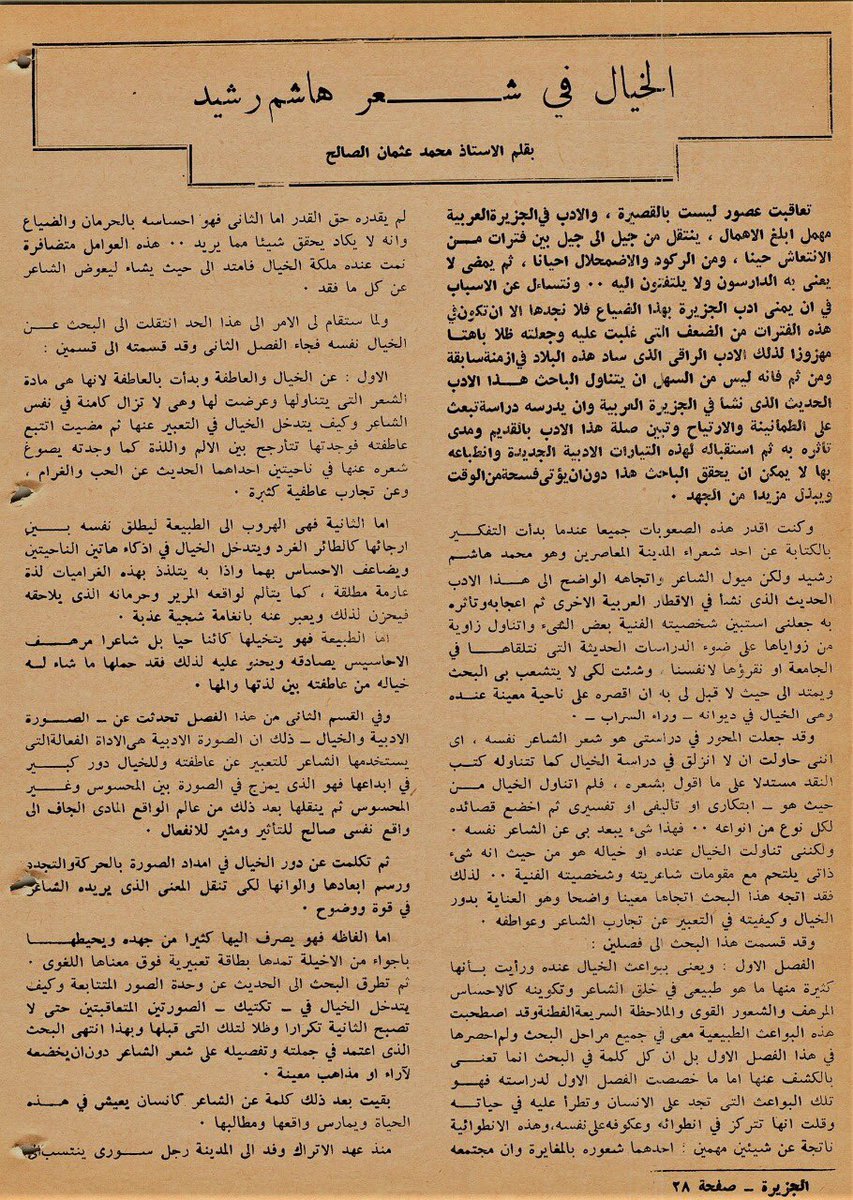 الخيال في شعر هاشم رشيد
بقلم الاستاذ محمد عثمان الصالح
تعاقبت عصور ليست بالقصيرة ، والادب في الجزيرة العربية
مهمل ابلغ الاهمال ، ينتقل من جيل الى جيل بين فترات مـــن
الانتعاش حينا ، ومن الركود والاضمحلال احيانا ، ثم يمضى لا
يعنى به الدارسون ولا يلتفتون اليه ٠٠ ونتساءل عن الاسباب
في ان يمنى ادب الجزيرة بهذا الضياع فلا نجدها الا ان تكون في
هذه الفترات من الضعف التى غلبت عليه وجعلته ظلا باهتـا
مهزوزا لذلك الادب الراقى الذى ساد هذه البلاد في ازمنة سابقة
ومن ثم فانه ليس من السهل ان يتناول الباحث هـــذا الادب
الحديث الذى نشأ في الجزيرة العربية وان يدرسه دراسة تبعث
على الطمأنينة والارتياح وتبين صلة هذا الادب بالقديم ومدى
تأثره به ثم استقباله لهذه التيارات الادبية الجديدة وانطباعه
بها لا يمكن ان يحقق الباحث هذا دون ان يؤتى فسحة من الوقت
ويبذل مزيدا من الجهد ٠
وكنت اقدر هذه الصعوبات جميعا عندما بدأت التفكـير
بالكتابة عن احد شعراء المدينة المعاصرين وهو محمد هاشـم
رشيد ولكن ميول الشاعر واتجاهه الواضح الى هــذا الادب
الحديث الذى نشأ في الاقطار العربية الاخرى ثم اعجابه وتأثره
به جعلنى استبين شخصيته الفنية بعض الشىء واتناول زاوية
من زواياها على ضوء الدراسات الحديثة التى نتلقاهـــا في
الجامعة او نقرؤها لانفسنا ، وشئت لكى لا يتشعب بى البحث
ويمتد الى حيث لا قبل لى به ان اقصره على ناحية معينة عنـده
وهى الخيال في ديوانه ـ وراء السراب ـ ٠
وقد جعلت المحور في دراستى هو شعر الشاعر نفسه ، اى
اننى حاولت ان لا انزلق في دراسة الخيال كما تتناوله كتـب
النقد مستدلا على ما اقول بشعره ، فلم اتناول الخيال مــن
حيث هو ـ ابتكارى او تأليفى او تفسيرى ثم اخضع قصائده
لكل نوع من انواعه ٠٠ فهذا شىء يبعد بى عن الشاعر نفسه ٠
ولكننى تناولت الخيال عنده او خياله هو من حيث انه شىء
ذاتى يلتحم مع مقومات شاعريته وشخصيته الفنية ٠٠ لذلك
فقد اتجه هذا البحث اتجاها معينا واضحا وهو العناية بدور
الخيال وكيفيته في التعبير عن تجارب الشاعر وعواطفه ٠
وقد قسمت هذا البحث الى فصلين :
الفصل الاول : ويعنى ببواعث الخيال عنده ورأيت بـأنها
كثيرة منها ما هو طبيعي في خلق الشاعر وتكوينه كالاحساس
المرهف والشعور القوى والملاحظة السريعة الفطنة وقد اصطحبت
هذه البواعث الطبيعية معى في جميع مراحل البحث ولم احصرها
في هذا الفصل الاول بل ان كل كلمة في البحث انما تعنــى
بالكشف عنها اما ما خصصت الفصل الاول لدراسته فهــو
تلك البواعث التى تجد على الانسان وتطرأ عليه في حياتــه
وقلت انها تتركز في انطوائه وعكوفه على نفسه، وهذه الانطوائية
ناتجة عن شيئين مهمين : احدهما شعوره بالمغايرة وان مجتمعه
لم يقدره حق القدر اما الثانى فهو احساسه بالحرمان والضياع
وانه لا يكاد يحقق شيئا مما يريد ٠٠ هذه العوامل متضافرة
نمت عنده ملكة الخيال فامتد الى حيث يشاء ليعوض الشاعر
عن كل ما فقد ٠
ولما ستقام لى الامر الى هذا الحد انتقلت الى البحث عـــن
الخيال نفسه فجاء الفصل الثانى وقد قسمته الى قسمين :
الاول : عن الخيال والعاطفة وبدأت بالعاطفة لانها هى مادة
الشعر التى يتناولها وعرضت لها وهى لا تزال كامنة في نفس
الشاعر وكيف يتدخل الخيال في التعبير عنها ثم مضيت اتتبع
عاطفته فوجدتها تتأرجح بين الالم واللذة كما وجدته يصوغ
شعره عنها في ناحيتين احداهما الحديث عن الحب والغرام ،
وعن تجارب عاطفية كثيرة ٠
اما الثانية فهى الهروب الى الطبيعة ليطلق نفسه بـــين
ارجائها كالطائر الغرد ويتدخل الخيال في اذكاء هاتين الناحيتين
ويضاعف الاحساس بهما واذا به يتلذذ بهذه الغراميات لذة
عارمة مطلقة ، كما يتألم لواقعه المرير وحرمانه الذى يلاحقه
فيحزن لذلك ويعبر عنه بانغامة شجية عذبة ٠
اما الطبيعة فهو يتخيلها كائنا حيا بل شاعرا مرهــف
الاحاسيس يصادقه ويحنو عليه لذلك فقد حملها ما شاء لــه
خياله من عاطفته بين لذتها والمها ٠
وفي القسم الثانى من هذا الفصل تحدثت عن ـ الصـورة
الادبية والخيال ـ ذلك ان الصورة الادبية هى الاداة الفعالة التى
يستخدمها الشاعر للتعبير عن عاطفته وللخيال دور كبــير
في ابداعها فهو الذى يمزج في الصورة بين المحسوس وغـــير
المحسوس ثم ينقلها بعد ذلك من عالم الواقع المادى الجاف الى
واقع نفسى صالح للتأثير ومثير للانفعال ٠
ثم تكلمت عن دور الخيال في امداد الصورة بالحركة والتجدد
ورسم ابعادها والوانها لكى تنقل المعنى الذى يريده الشاعر
في قوة ووضوح ٠
اما الفاظه فهو يصرف اليها كثيرا من جهده ويحيطهــا
باجواء من الاخيلة تمدها بطاقة تعبيرية فوق معناها اللغوى ٠
ثم تطرق البحث الى الحديث عن وحدة الصور المتتابعة وكيف
يتدخل الخيال في ـ تكتيك ـ الصورتين المتعاقبتين حتى لا
تصبح الثانية تكرارا وظلا لتلك التى قبلها وبهذا انتهى البحث
الذى اعتمد في جملته وتفصيله على شعر الشاعر دون ان يخضعه
لآراء او مذاهب معينة ٠
بقيت بعد ذلك كلمة عن الشاعر كانسان يعيش في هــذه
الحياة ويمارس واقعها ومطالبها ٠
منذ عهد الاتراك وفد الى المدينة رجل ســورى ينتسب
الجزيرة ـ صفحة ٢٨